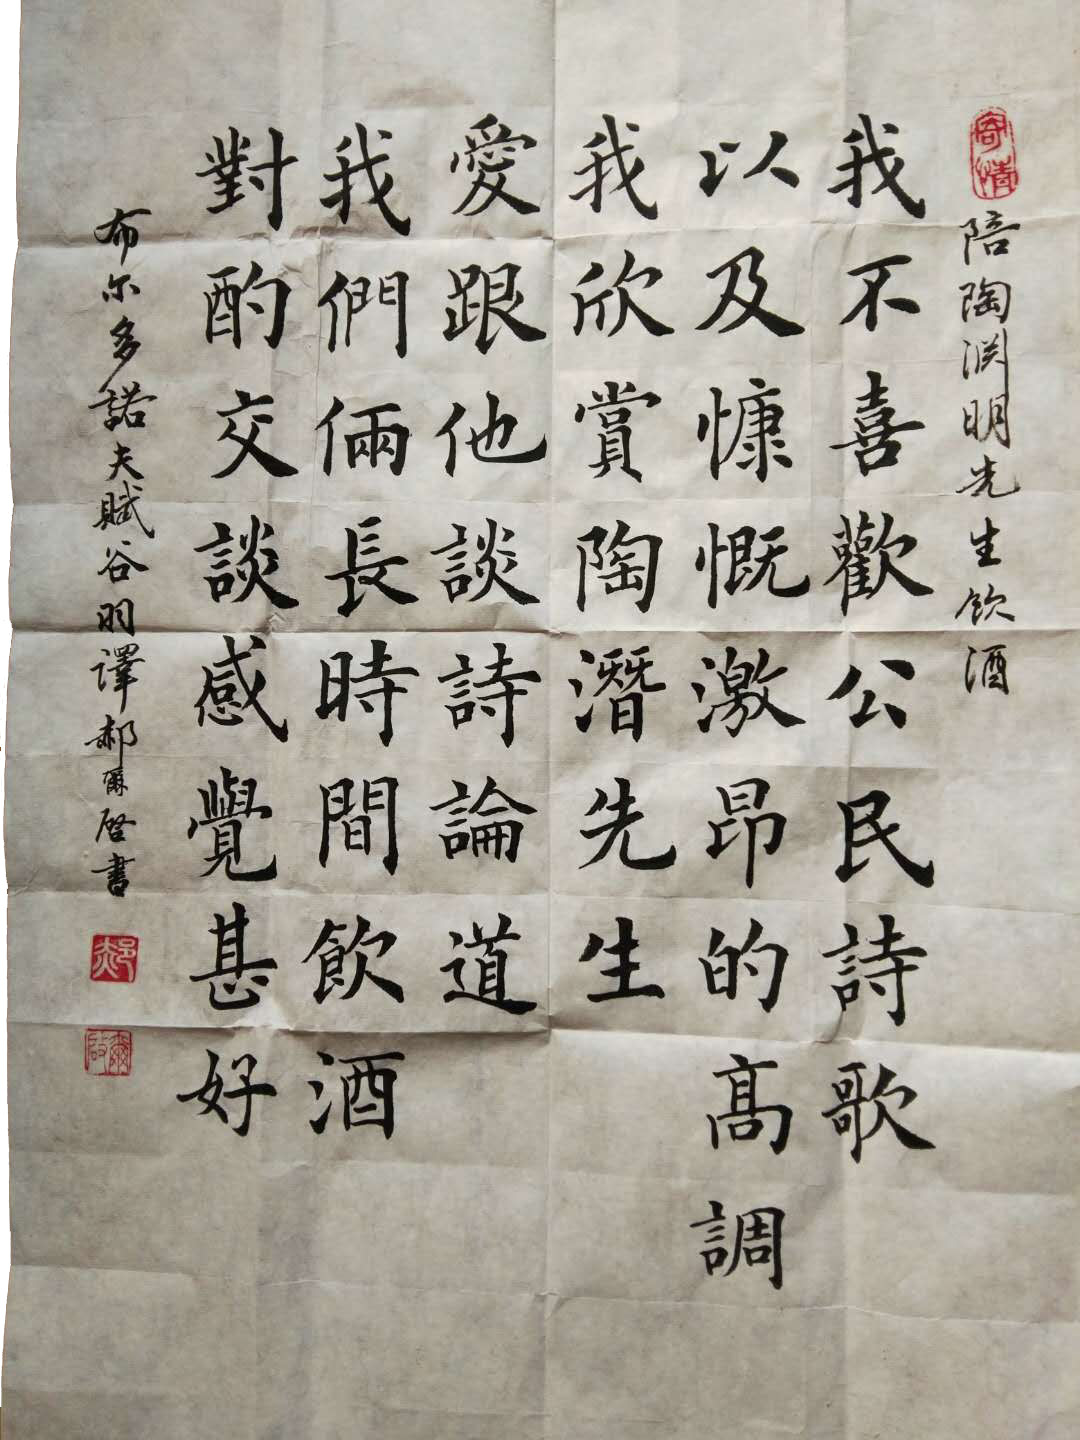 寄情
陪陶渊明先生饮酒
我不喜歡公民詩歌
以及慷慨激昂的高調
我欣賞陶潛先生
愛跟他談詩論道
我們倆長時間飲酒
對酌交談感覺甚好
布尔多諾夫賦谷羽譯郝爾啓書
郝
爾啓